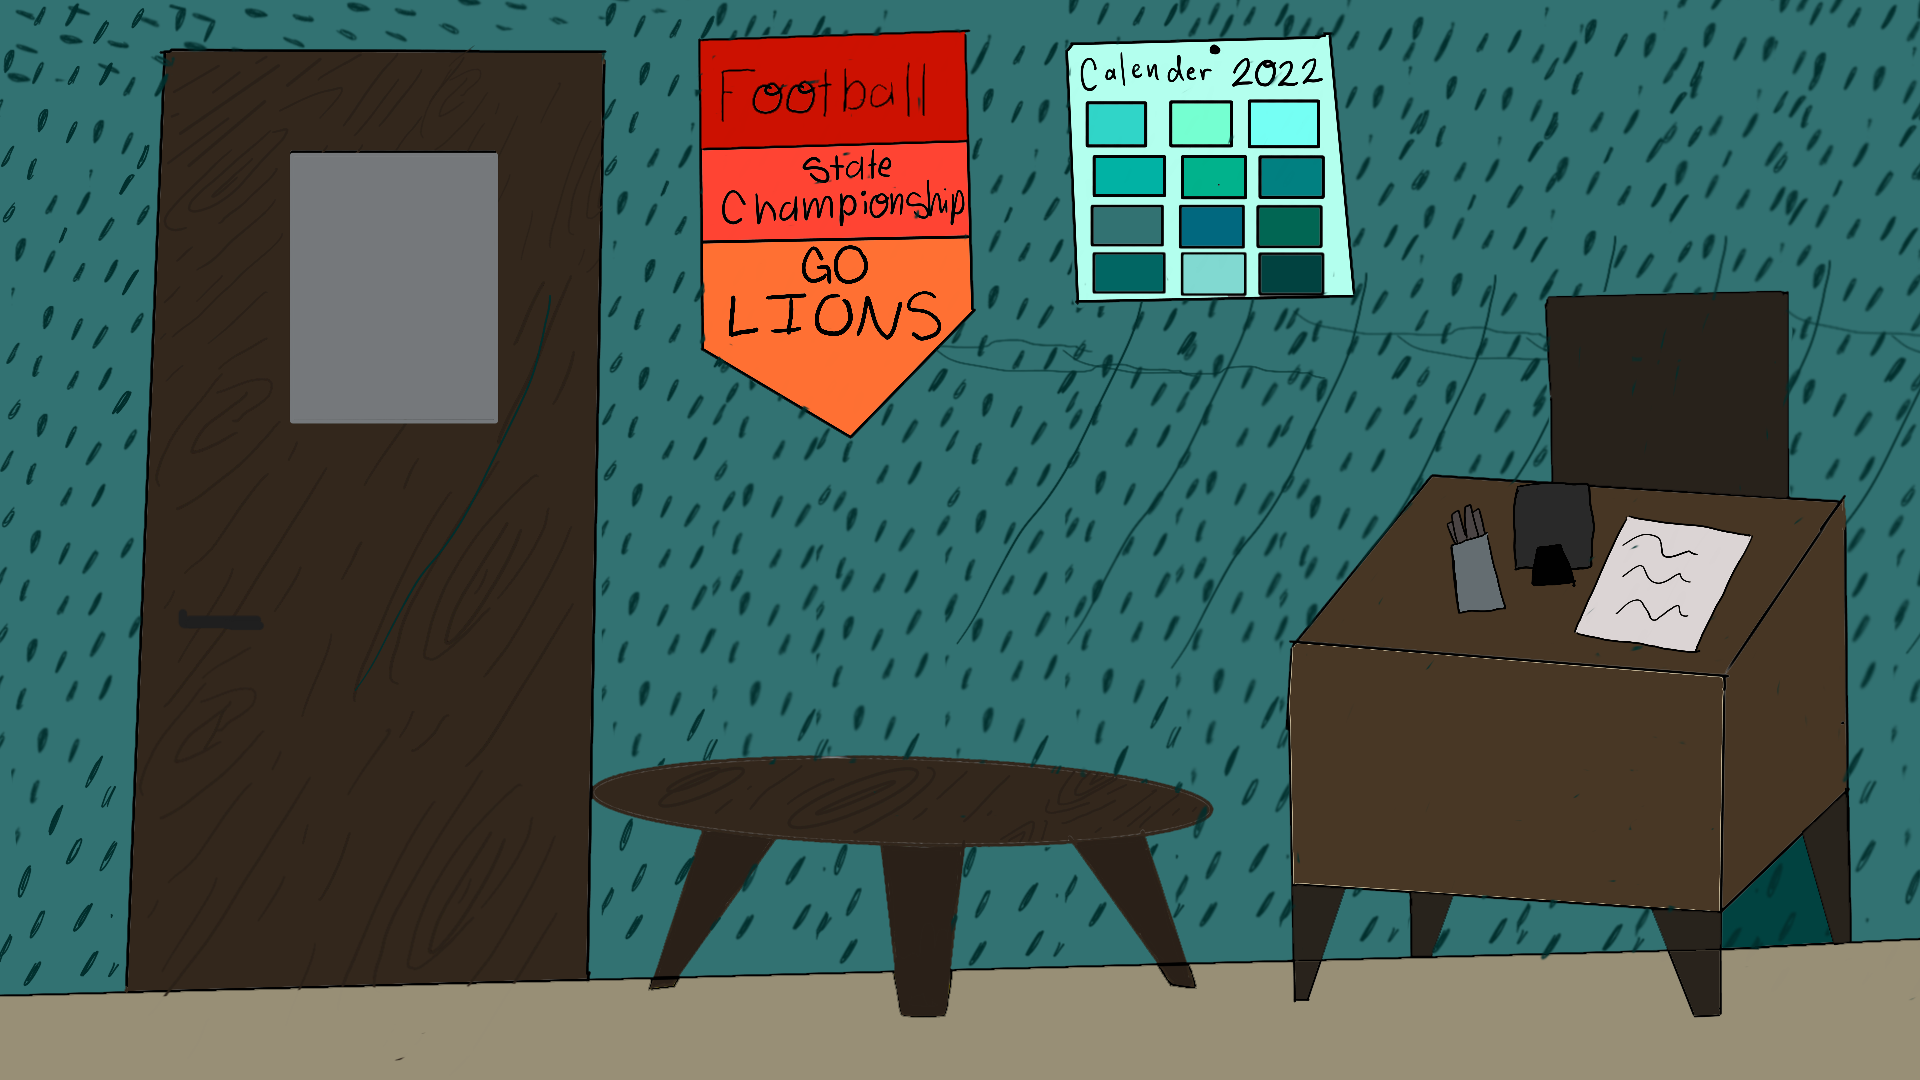 Football
State
Championship
GO
LIONS
Calender 2022